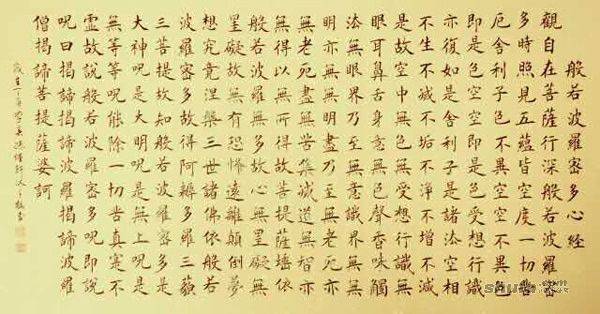 般若波羅密多心經
觀自在菩薩行深般若波羅密
多時照見五蘊皆空度一切苦
厄舍利子色不異空空不異色
即是空空即是色受想行識
亦復如是舍利子是諸法空相
不生不滅不垢不淨不增不減
是故空中無色無受想行識無
眼耳鼻舌身意無色聲香味觸
法無眼界乃至無意識界無無
明亦無無明盡乃至無老死亦
無老死盡無苦集滅道無智亦
無得以無所得故菩提薩埵依
般若波羅密多故心無罣礙無
罣礙故無有恐怖遠離顛倒夢
想究竟涅槃三世諸佛依般若
波羅密多故得阿耨多羅三藐
三菩提故知般若波羅密多是
大神呪是大明呪是無上呪是
無等等呪能除一切苦真實不
虛故說般若波羅密多呪即說
呪曰揭諦揭諦波羅揭諦波羅
僧揭諦菩提薩婆訶